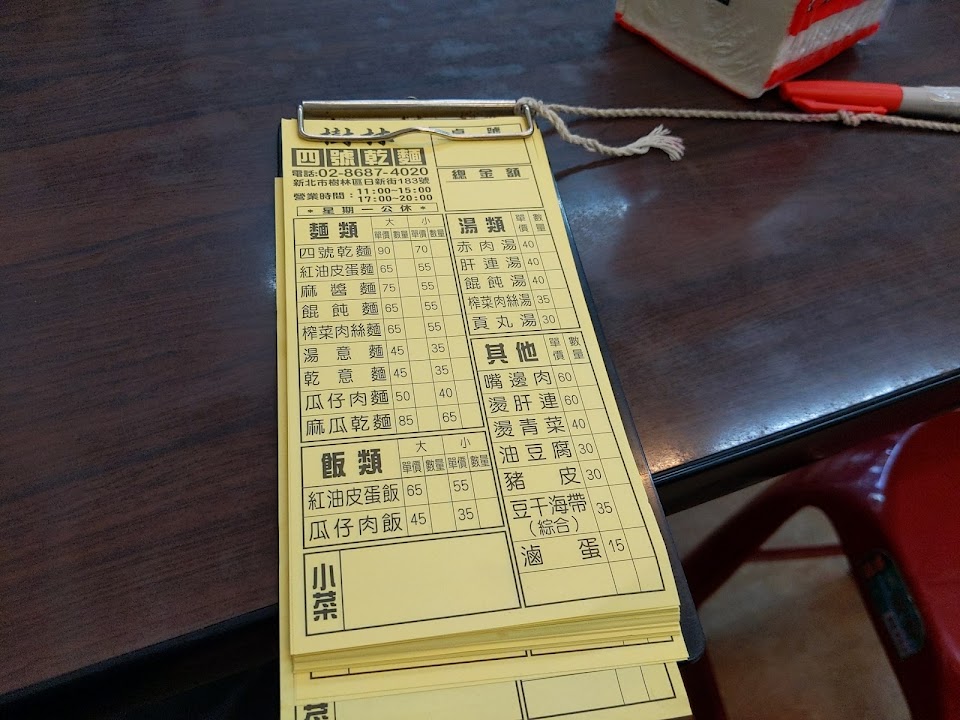 樹林
四號乾麵
電話:02-8687-4020
新北市樹林區日新街183號
營業時間：11:00~15:00
17:00~20:00
* 星期一公休 *
桌號
總金額
麵類 大 小
單價 數量 單價 數量
四號乾麵 90 70
紅油皮蛋麵 65 55
麻醬麵 75 55
餛飩麵 65 55
榨菜肉絲麵 65 55
湯意麵 45 35
乾意麵 45 35
瓜仔肉麵 50 40
麻瓜乾麵 85 65
飯類 大 小
單價 數量 單價 數量
紅油皮蛋飯 65 55
瓜仔肉飯 45 35
小菜
湯類 單價 數量
赤肉湯 40
肝連湯 40
餛飩湯 40
榨菜肉絲湯 35
貢丸湯 30
其他 單價 數量
嘴邊肉 60
燙肝連 60
燙青菜 40
油豆腐 30
豬皮 30
豆干海帶 35
(綜合)
滷蛋 15